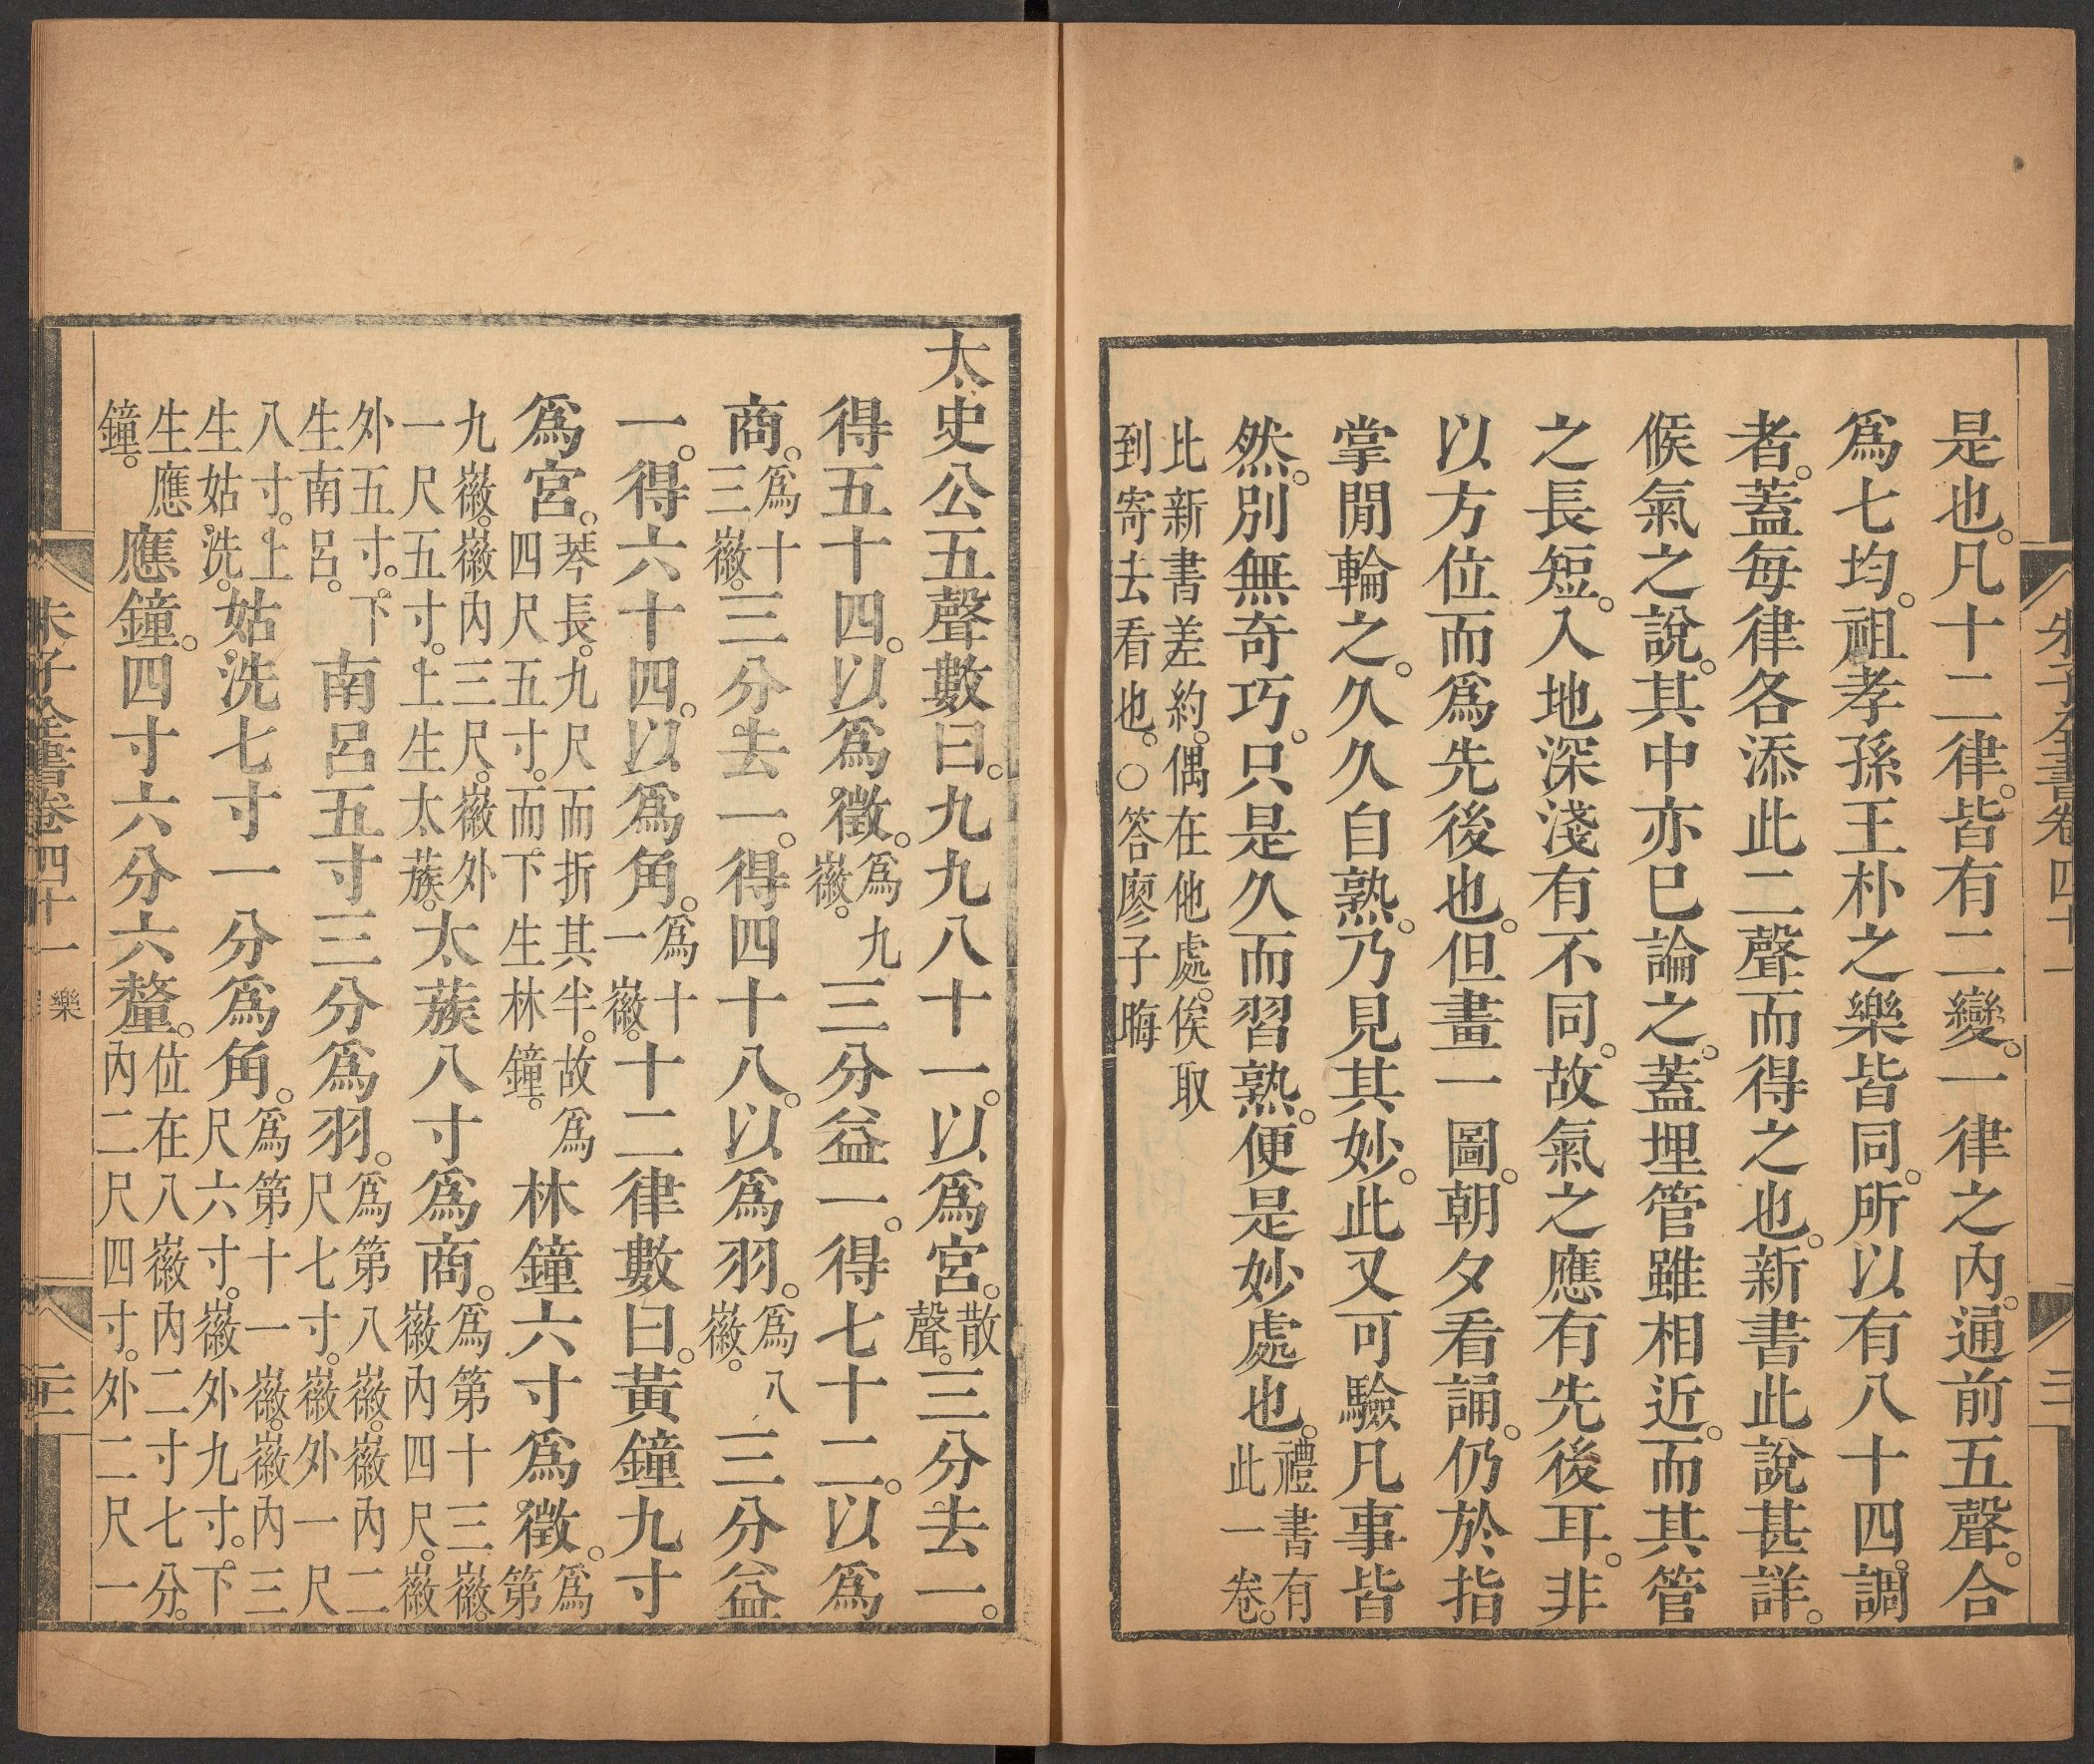 朱子全書卷四十一
是也。凡十二律。皆有二變。一律之內。通前五聲。合
爲七均。祖孝孫王朴之樂皆同。所以有八十四調
者。蓋每律各添此二聲而得之也。新書此說甚詳。
候氣之說。其中亦已論之。蓋埋管雖相近。而其管
之長短。入地深淺有不同。故氣之應有先後耳。非
以方位而爲先後也。但畫一圖。朝夕看誦。仍於指
掌閒輪之。久久自熟。乃見其妙。此又可驗凡事皆
然。別無奇巧。只是久而習熟。便是妙處也。禮書有此一卷。
比新書差約。偶在他處。俟取
到寄去看也。○答廖子晦
太史公五聲數曰。九九八十一。以爲宮。散聲。三分去一。
得五十四。以爲徵。爲九徽。三分益一。得七十二。以爲
商。爲十三徽。三分去一。得四十八。以爲羽。爲八徽。三分益
一。得六十四。以爲角。爲十一徽。十二律數曰。黃鐘九寸
爲宮。琴長。九尺而折其半。故爲四尺五寸。而下生林鐘。林鐘六寸爲徵。爲第
九徽。徽內三尺。徽外一尺五寸。上生太蔟。太蔟八寸爲商。爲第十三徽。徽內四尺。徽
外五寸。下生南呂。南呂五寸三分爲羽。爲第八徽。徽內二尺七寸。徽外一尺
八寸。上生姑洗。姑洗七寸一分爲角。爲第十一徽。徽內三尺六寸。徽外九寸。下
生應鐘。應鐘。四寸六分六釐。位在八徽內二寸七分。內二尺四寸。外二尺一
朱子全書卷四十一 樂